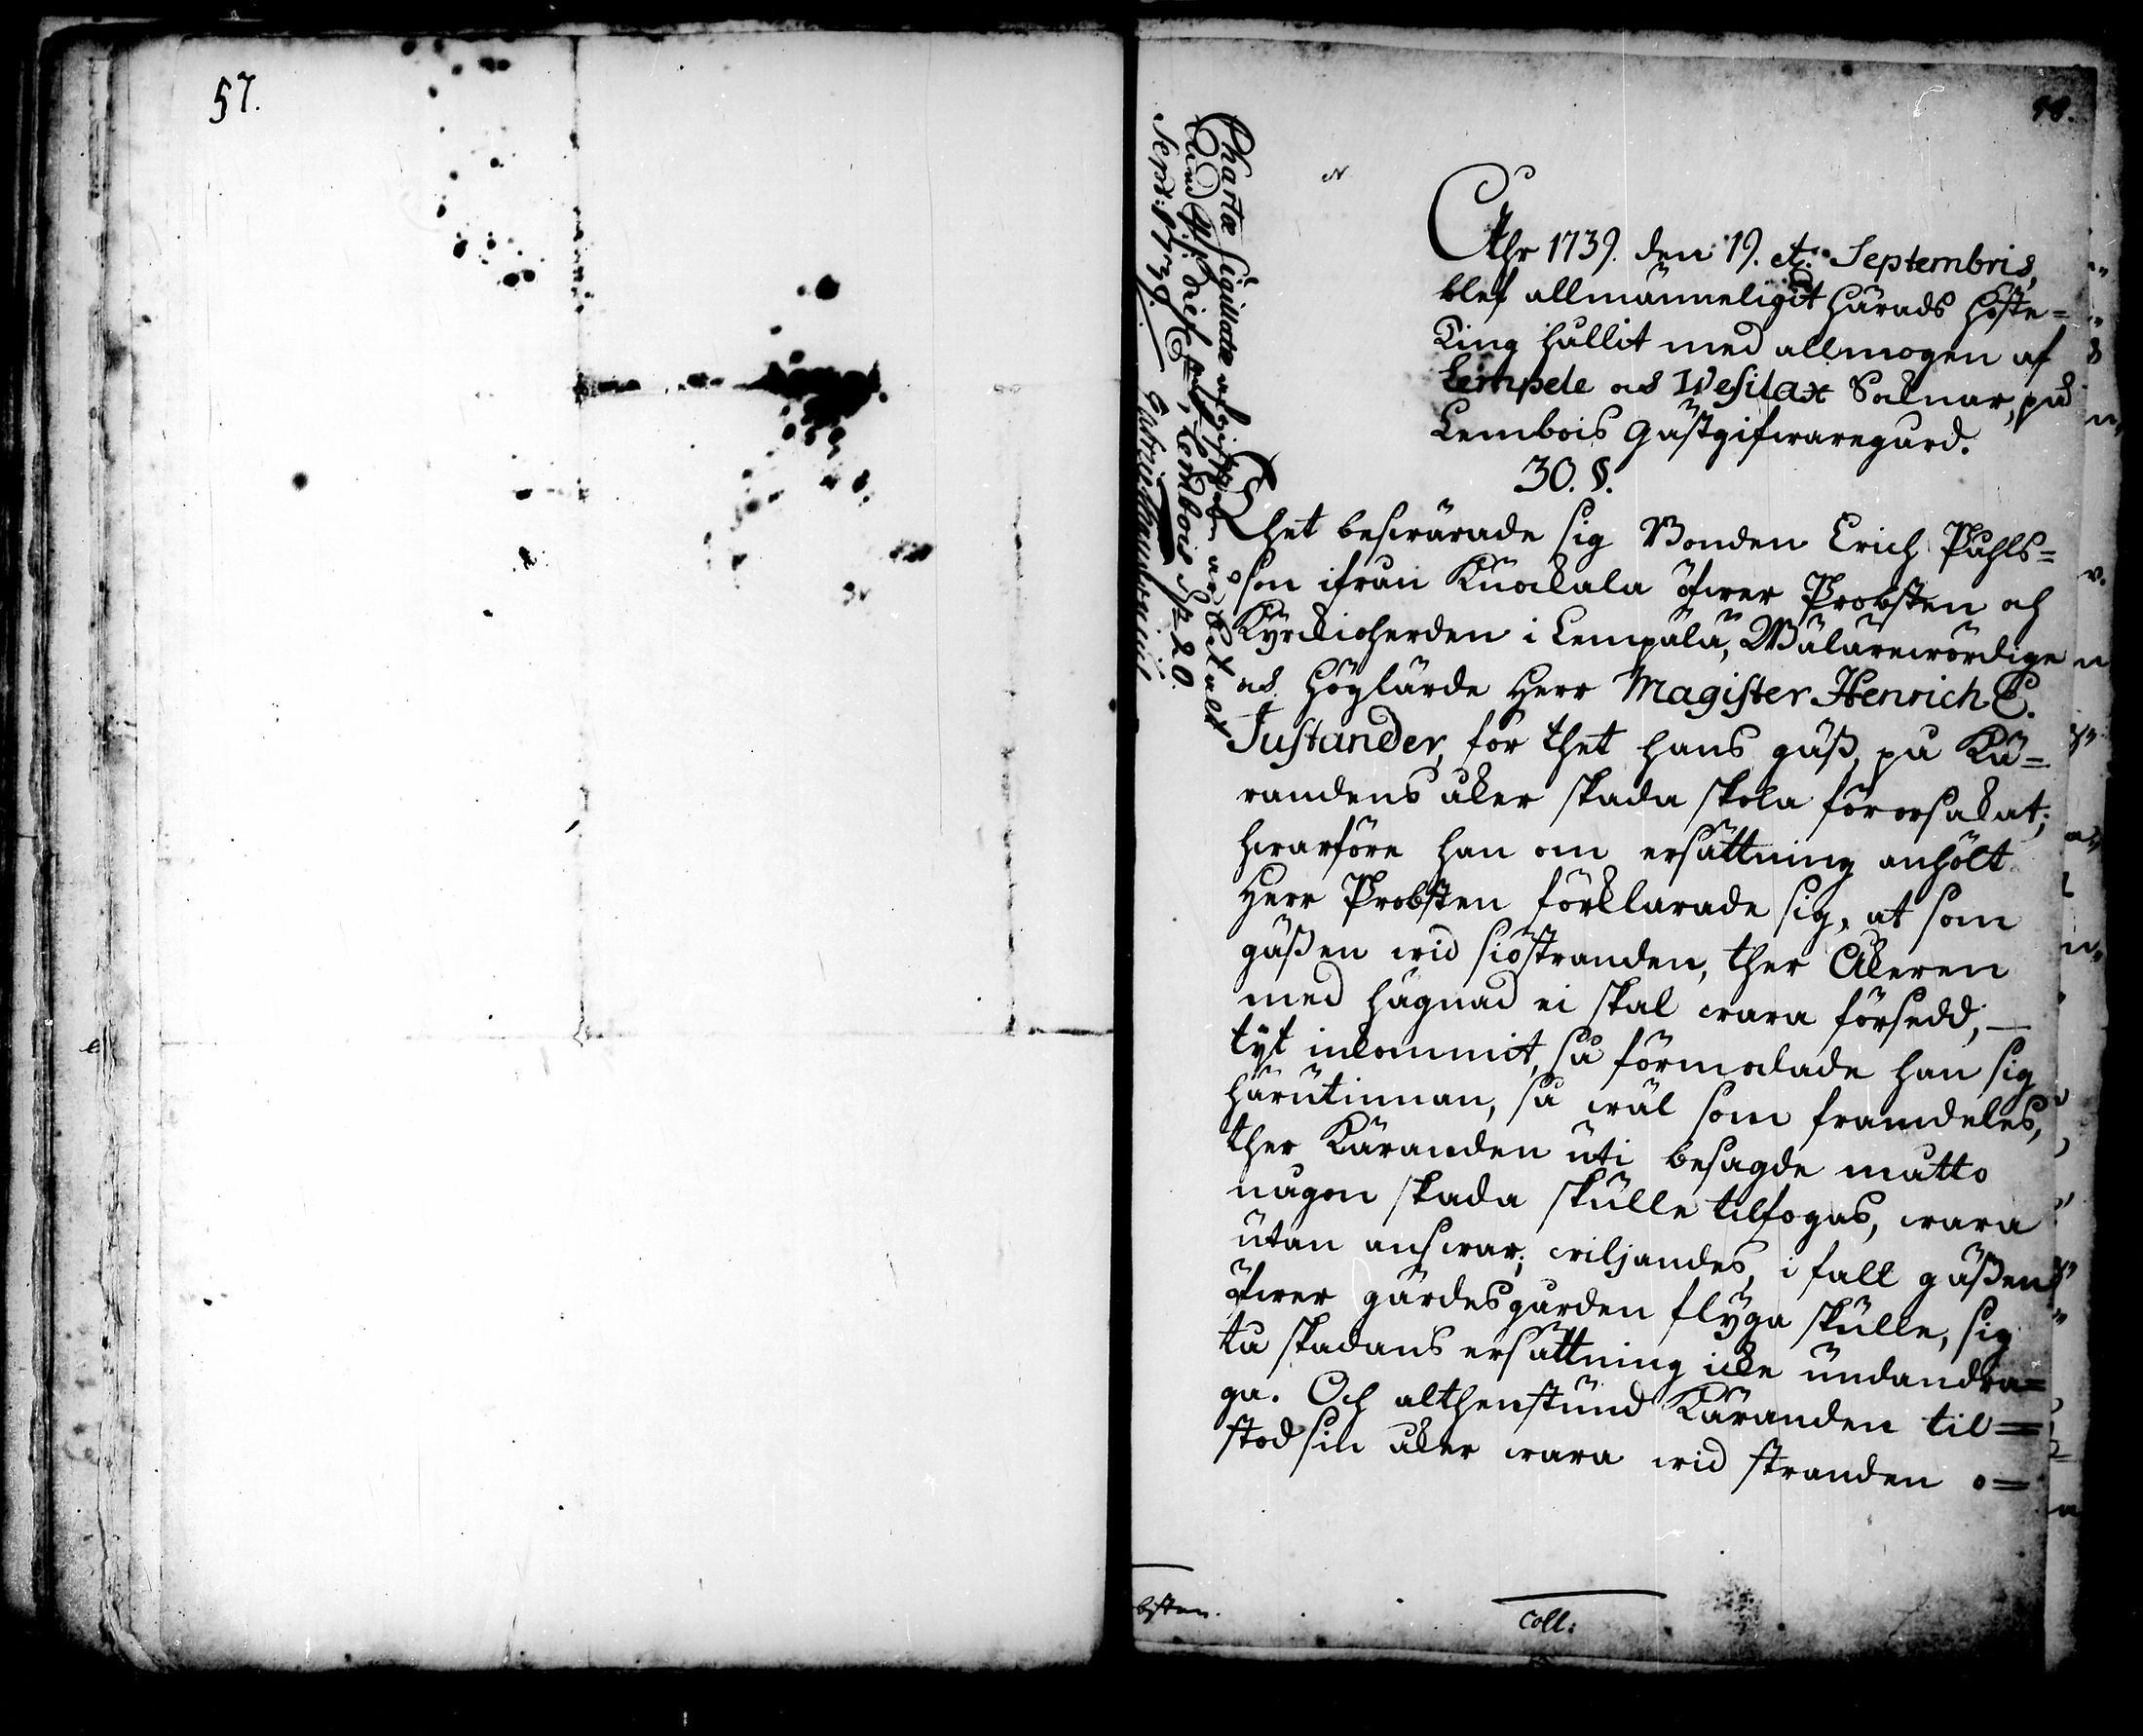 57.
58.
Åhr 1739. den 19. etc. Septembris,
blef allmänneligit Härads Höste=
Ting hållit med allmogen af
Lempele och Wesilax Soknar, på
Lembois Gästgifwaregård.
30. §.
Thet beswärade sig Bonden Erich Påhls=
son ifrån Kuockala öfwer Probsten och
Kyrckioherden i Lempälä, Wälärewördige
och Höglärde Herr Magister Henrich C.
Justander, för thet hans gäß, på Kä=
randens åker skada skola förorsakat;
hwarföre han om ersättning anhölt
Herr Probsten förklarade sig, at som
gäßen wid siöstranden, ther Åkeren
med hägnad ei skal wara försedd,
tyt inkommit, så förmodade han sig
härutinnan, så wäl som framdeles,
ther Käranden uti besagde måtto
någon skada skulle tilfogas, wara
utan answar; wiljandes, i fall gäßen
öfwer gärdesgården flyga skulle, sig
tå skadans ersättning icke undandra=
ga. Och althenstund Käranden til=
stod sin åker wara wid stranden o=
coll:
Charta Sigillata afgiften är betalt